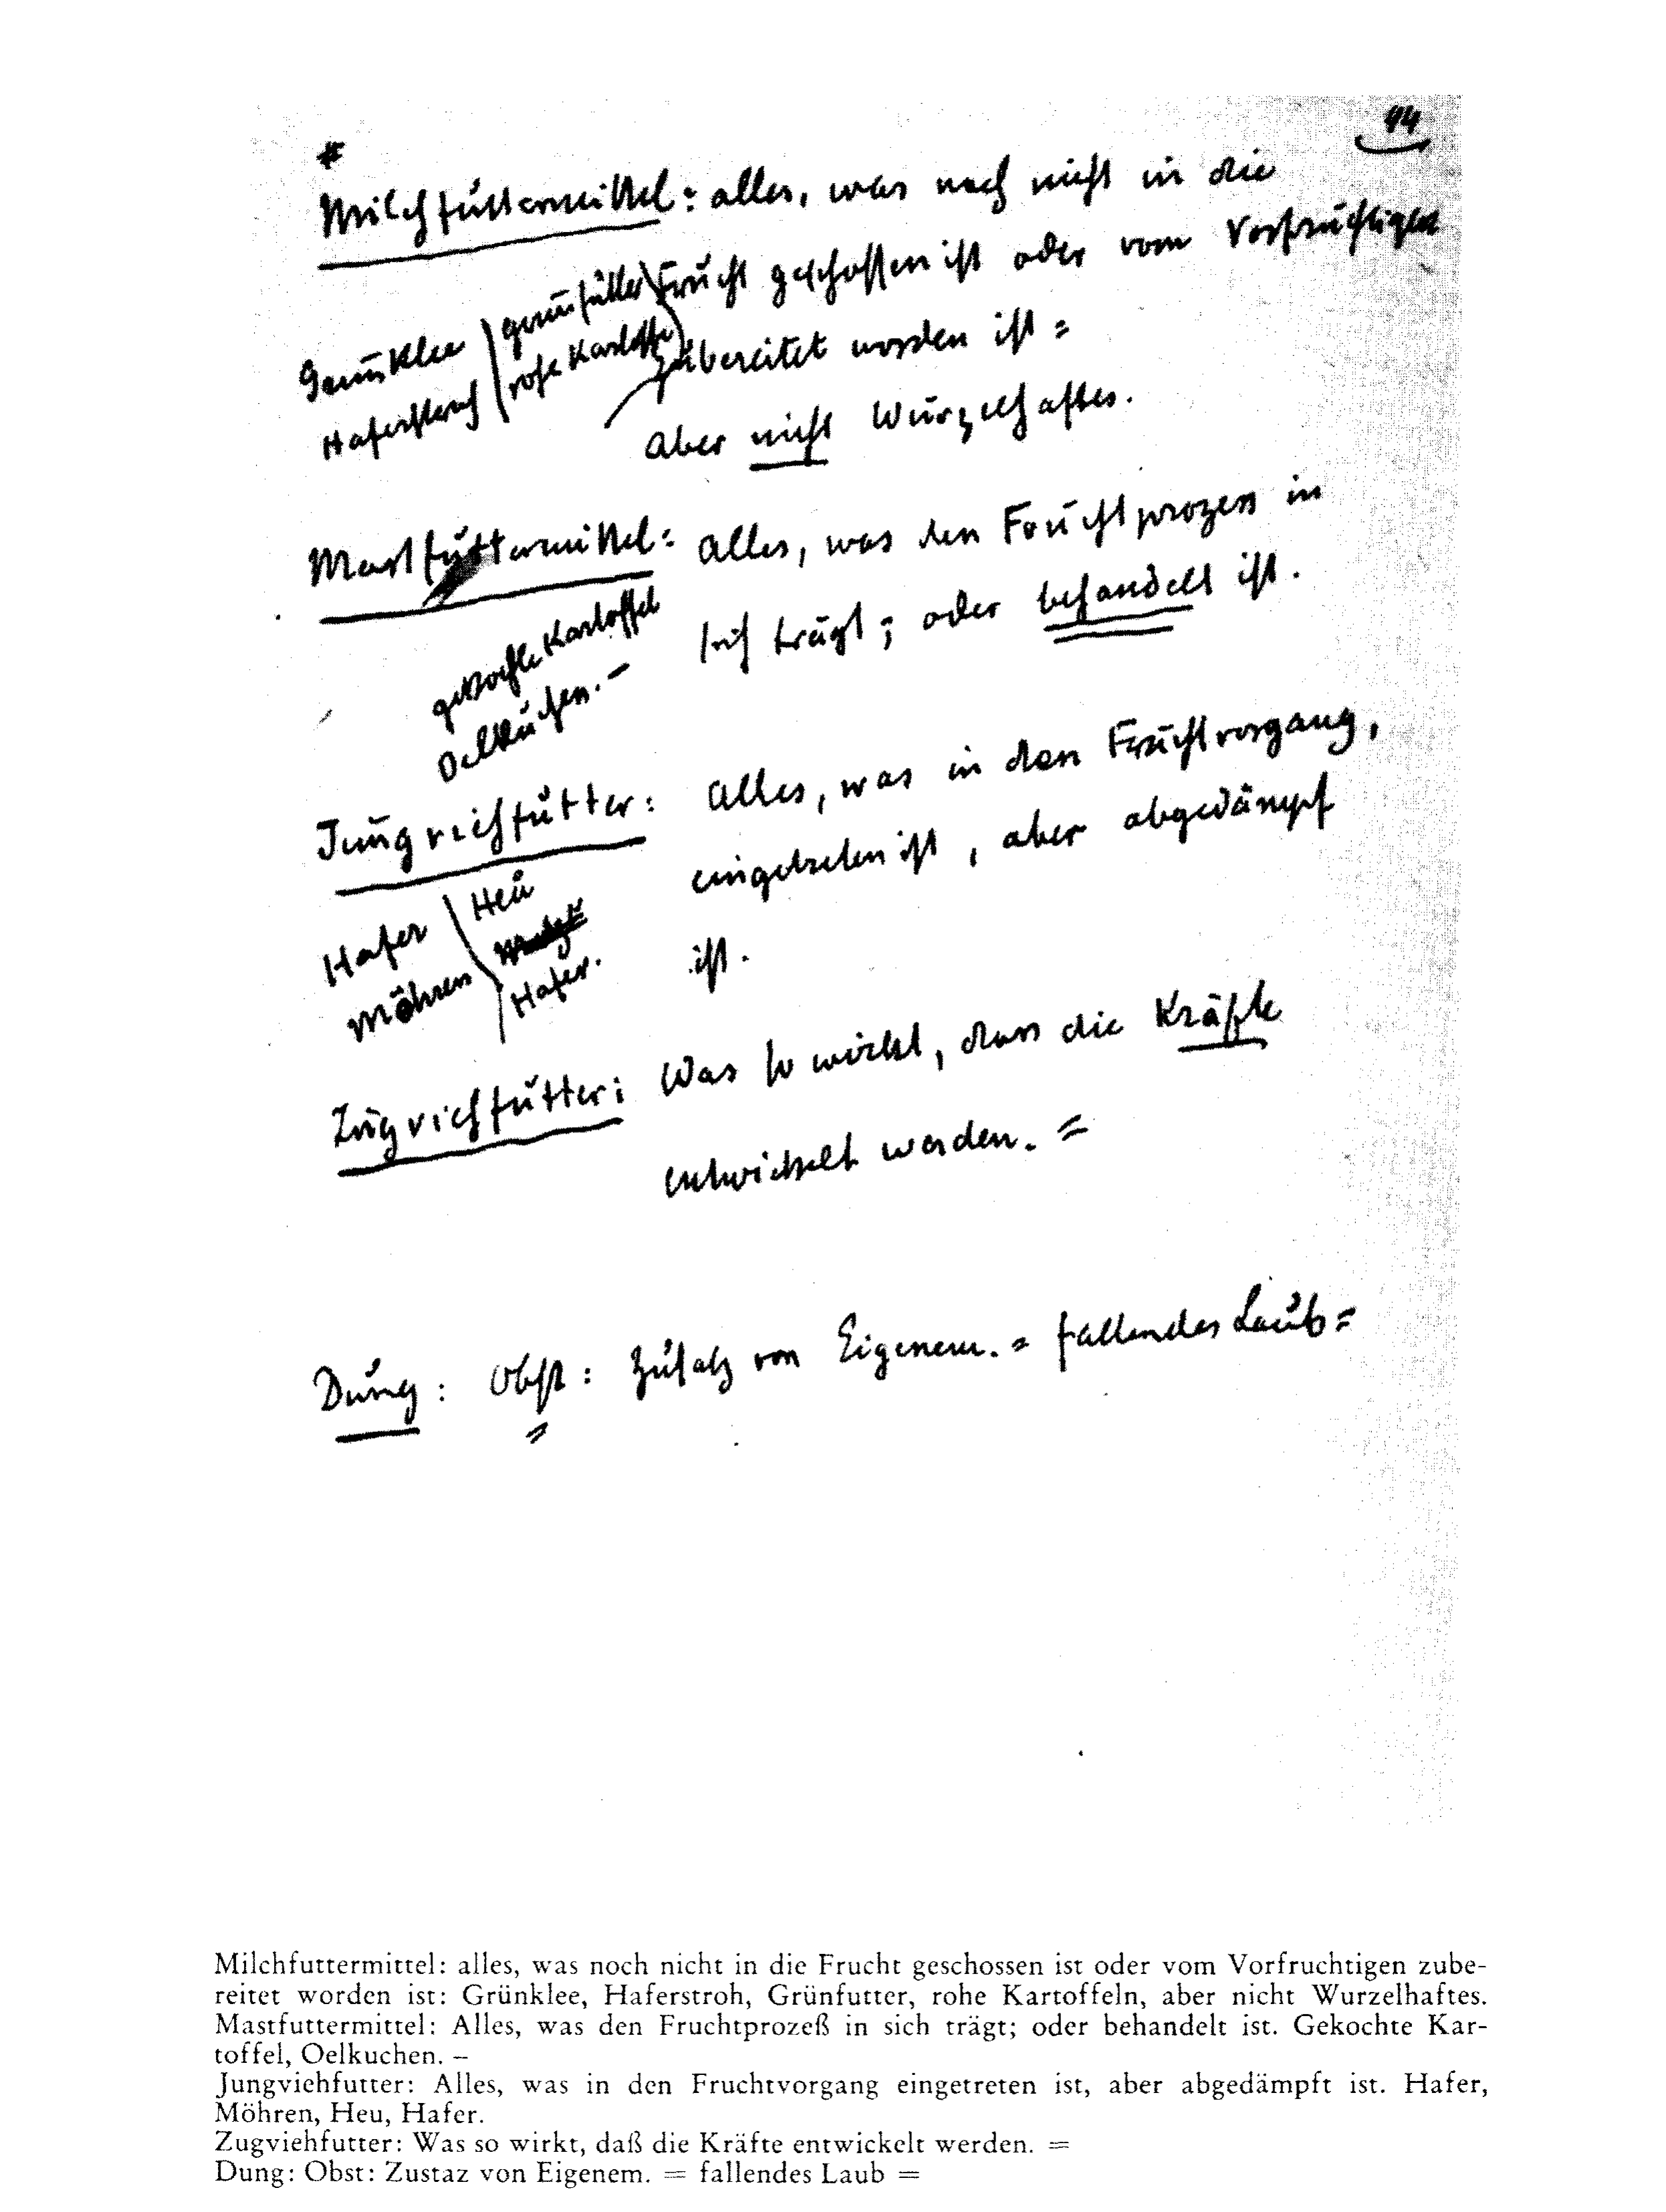 44
#
Milchfuttermittel: alles, was noch nicht in die
Frucht geschossen ist oder vom Vorfruchtigen
Grünklee grünfutter
Haferstroh rohe Kartoffel
zubereitet worden ist =
Aber nicht Wurzelhaftes.
Mastfuttermittel: Alles, was den Fruchtprozess in
sich trägt; oder behandelt ist.
gekochte Kartoffel
Oelkuchen. –
Jungviehfutter: Alles, was in den Fruchtvorgang,
eingetreten ist, aber abgedämpf
ist.
Hafer Heu
Möhren
Hafer.
Zugviehfutter: Was so wirkt, dass die Kräfte
entwickelt werden. =
Dung: Obst: Zusatz von Eigenem. = fallendes Laub =
Milchfuttermittel: alles, was noch nicht in die Frucht geschossen ist oder vom Vorfruchtigen zube-
reitet worden ist: Grünklee, Haferstroh, Grünfutter, rohe Kartoffeln, aber nicht Wurzelhaftes.
Mastfuttermittel: Alles, was den Fruchtprozeß in sich trägt; oder behandelt ist. Gekochte Kar-
toffel, Oelkuchen. –
Jungviehfutter: Alles, was in den Fruchtvorgang eingetreten ist, aber abgedämpft ist. Hafer,
Möhren, Heu, Hafer.
Zugviehfutter: Was so wirkt, daß die Kräfte entwickelt werden. =
Dung: Obst: Zustaz von Eigenem. = fallendes Laub =